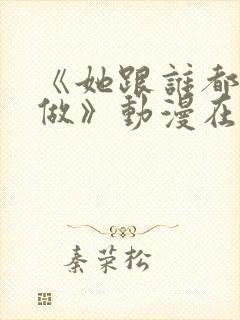 《她跟誰都
做》動漫在
秦荣松